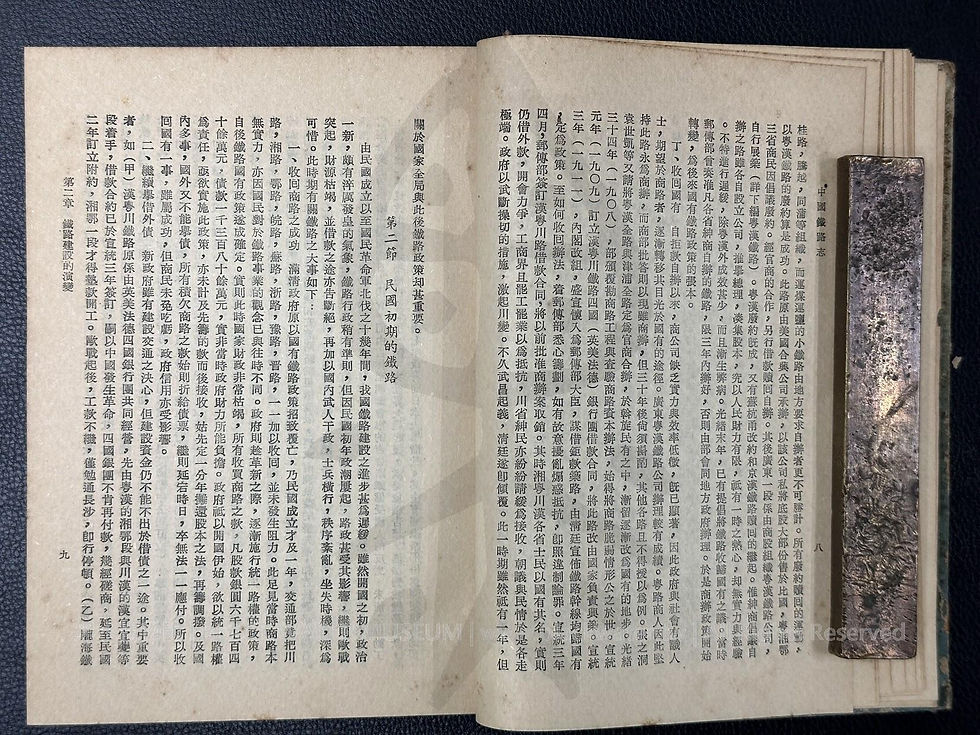 中國鐵路志
八
桂路,騰越,同蒲等組織,而運煤運鹽的小鐵路由地方要求自辦者更不可勝計。所有廢約贖回的運動,
以粵漢鐵路的廢約算是成功。此路原由美國合興公司承辦,以該公司私將底股大部份售於比國,粵湘鄂
三省商民因倡議廢約,經官商的合作,另行借款贖回自辦。其後廣東一段係由商設組織粵漢鐵路公司,
自行展築(詳下編粵漢鐵路)。粵漢廢約既成,又有蘇杭甬改約和京漢鐵路贖回的繼起。惟紳商倡議自
辦之路雖各自設立公司,推擧總理,湊集股本,先以人民財力有限,祇有一時之熱心,却無實力與經驗
。不特進行遲緩,除粵漢外成效甚少,而且漸生弊病。光緒末年,已有提倡將鐵路收歸國有之議。當時
郵傳部曾奏准凡各省紳商自辦的鐵路,限三年內辦好,否則由部會同地方政府辦理。於是商辦政策開始
轉變,爲後來國有鐵路政策的張本。
丁、收回國有 自拒款自辦以來,商公司缺乏實力與效率低微,既已顯著,因此政府與社會有識人
士,期望於商路者,逐漸轉移其目光於國有的途徑。廣東粵漢鐵路公司辦理較有成績。粵路商人因此堅
持此路永爲商辦,而商部批答則以現雖商辦,但三十年後尙須掛酌,其他各路且不得援以爲例。張之洞
袁世凱等又請將粵漢全路與津浦全路定爲官商合辦,於幹旋民有之中,漸留逐漸改爲國有的地步。光緒
三十四年(一九〇八),部頒履勘商路工程與查驗商路資本辦法,始得將商路脆弱情形公之於世。宣統
元年(一九〇九)訂立漢粵川鐵路四國(英美法德)銀行團借款合同,將此路改由國家負責興築。宣統
三年(一九一一),內閣改組,盛宣懷入爲郵傳部大臣,謀借鉅款築路,由清廷宣佈鐵路幹線均歸國有
,定爲政策。至如何收回辦法,着郵傳部悉心籌劃,如有故意擾亂煽惑抵抗,卽照違制論罪。宣統三年
四月,郵傳部簽訂漢粵川路借款合同,將以前批准商辦案取銷。其時湘粵川漢各省士民以國有其名,實則
仍借外款,開會力爭,工商界且罷工罷業以爲抵抗,川省紳民亦紛紛請緩爲接收,朝議與民情於是各走
極端。政府以武斷操切的措施,激起川變。不久武昌起義,清廷遂卽傾覆。此一時期雖然祇有一年,但
關於國家全局與此後鐵路政策却甚重要。
第二節 民國初期的鐵路
由民國成立以至國民革命軍北伐之十幾年間,我國鐵路建設之進步甚爲遲緩。雖然開國之初,政治
一新,頗有洋溢發皇的氣象,鐵路行政稍有準則,但因民國初年政潮屢起,路政甚受其影響,繼則歐戰
突起,財源枯竭,並借款之途亦告斷絕,再加以國內武人干政,士兵橫行,秩序紊亂,坐失時機,深爲
可惜。此時期有關鐵路之大事如下:
一、收回商路之成功 滿清政府原以國有鐵路政策招致覆亡,乃民國成立才及一年,交通部竟把川
路,湘路,鄂路,皖路,蘇路,浙路,豫路,晉路,一一加以收回,並未發生阻力。此足見當時商路本
無實力,亦因國民對於鐵路事業的觀念已與往時不同。政府則趁革新之際,逐漸施行統一路權的政策,
自後鐵路國有政策遂成確定。實則此時國家財政非常枯竭,所有收買商路之款,凡股款銀圓六千七百四
十餘萬元,債款一千三百八十餘萬元,實非當時政府財力所能負擔。政府祇以開國伊始,欲以統一路權
爲責任,亟欲實施此政策,亦未計及先籌的款而後接收,始先定一分年攤還股本之法,再籌調撥。及國
內多事,國外又不能擧債,所有積欠商路之款始則折給債票,繼則延宕時日,卒無法一一應付。所以收
回國有一事,雖屬成功,但商民未免吃虧,政府信用亦受影響。
二、繼續擧借外債 新政府雖有建設交通之決心,但建設資金仍不能不出於借債之一途。其中重要
者,如(甲)漢粵川鐵路原係由英美法德四國銀行團共同經營,先由粵漢的湘鄂段與川漢的漢宜宜夔等
段着手,借款合約已於宣統三年簽訂,嗣以中國發生革命,四國銀團不肯再付款,幾經磋商,延至民國
二年訂立附約,湘鄂一段才得墊款開工。歐戰起後,工款不繼,僅勉通長沙,卽行停頓。(乙)隴海鐵
第二章 鐵路建設的演變
九
MUSEUM
Reserved